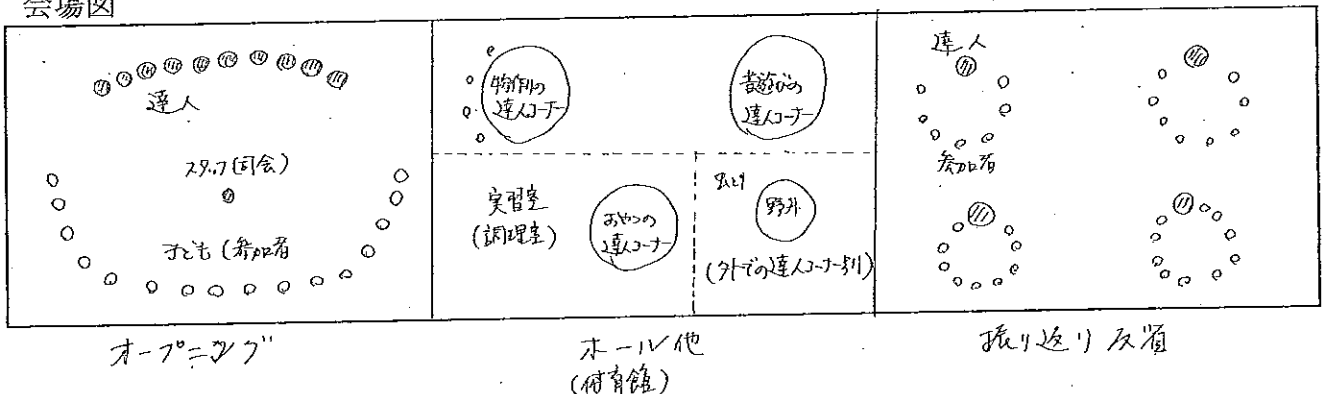 会場図
達人
スタッフ(司会)
子ども(参加者
オープニング
物作りの
達人コーナー
昔遊びの
達人コーナー
実習室
(調理室)
おやつの
達人コーナー
虫とり
野外
(外での達人コーナー
ホール他
(体育館)
達人
参加者
振り返り 反省